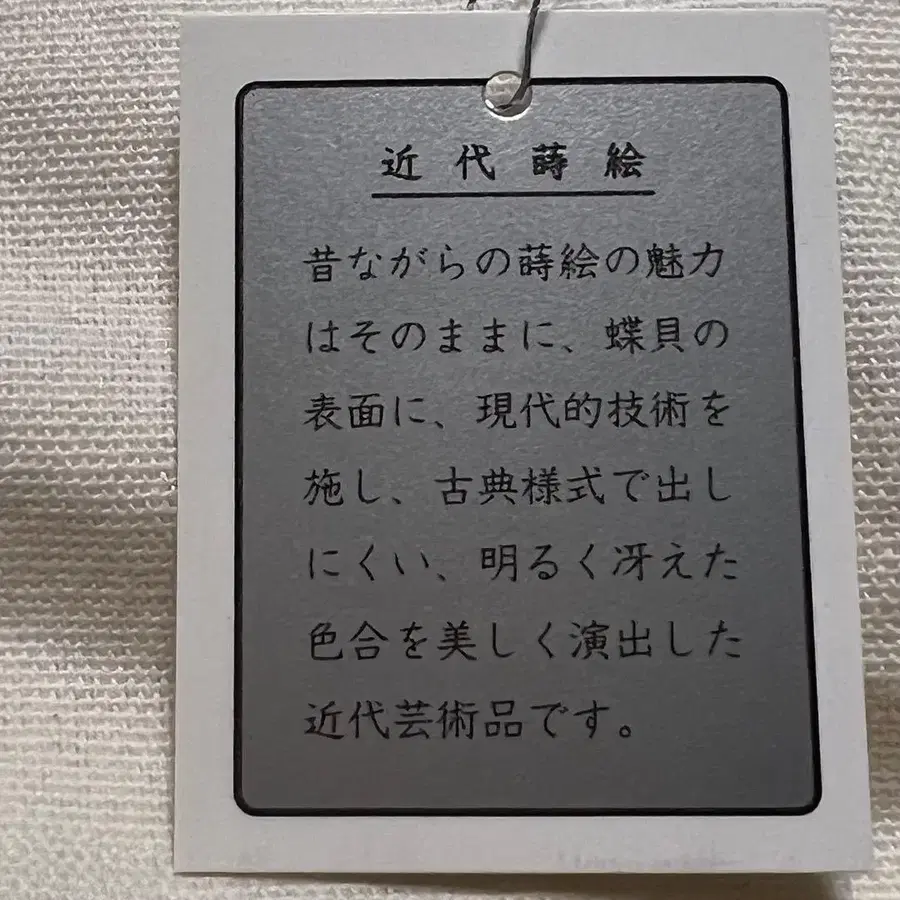 近代蒔絵
昔ながらの蒔絵の魅力
はそのままに、蝶貝の
表面に、現代的技術を
施し、古典様式で出し
にくい、明るく冴えた
色合を美しく演出した
近代芸術品です。